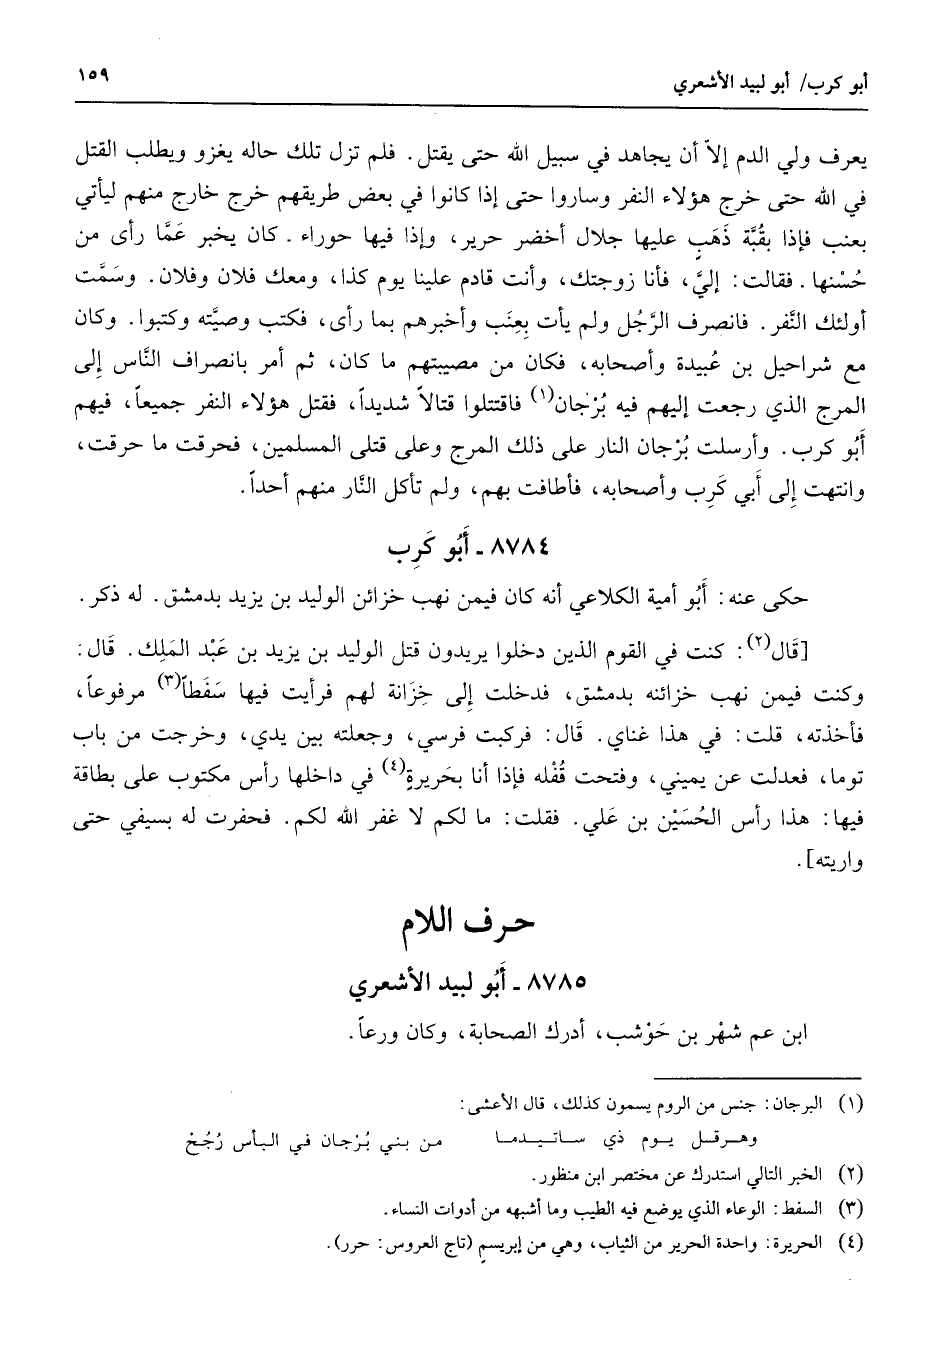 أبو كرب/ أبو لبيد الأشعري
١٥٩
يعرف ولي الدم إلاّ أن يجاهد في سبيل الله حتى يقتل. فلم تزل تلك حاله يغزو ويطلب القتل
في الله حتى خرج هؤلاء النفر وساروا حتى إذا كانوا في بعض طريقهم خرج خارج منهم ليأتي
بعنب فإذا بقُبَّة ذَهَبٍ عليها جلال أخضر حرير، وإذا فيها حوراء. كان يخبر عَمَّا رأى من
حُسْنها. فقالت: إليَّ، فأنا زوجتك، وأنت قادم علينا يوم كذا، ومعك فلان وفلان. وسَمَّت
أولئك النَّفر. فانصرف الرَّجُل ولم يأت بِعِنَب وأخبرهم بما رأى، فكتب وصيَّته وكتبوا. وكان
مع شراحيل بن عُبيدة وأصحابه، فكان من مصيبتهم ما كان، ثم أمر بانصراف النَّاس إلى
المرج الذي رجعت إليهم فيه بُرْجان(١) فاقتتلوا قتالاً شديداً، فقتل هؤلاء النفر جميعاً، فيهم
أَبُو كرب. وأرسلت بُرْجان النار على ذلك المرج وعلى قتلى المسلمين، فحرقت ما حرقت،
وانتهت إلى أَبي كَرِب وأصحابه، فأطافت بهم، ولم تأكل النَّار منهم أحداً.
٨٧٨٤ ـ أَبُو كَرِب
حكى عنه: أَبُو أمية الكلاعي أنه كان فيمن نهب خزائن الوليد بن يزيد بدمشق. له ذكر.
[قَال(٢): كنت في القوم الذين دخلوا يريدون قتل الوليد بن يزيد بن عَبْد المَلِك. قَال:
وكنت فيمن نهب خزائنه بدمشق، فدخلت إلى خِزَانة لهم فرأيت فيها سَفَطاً(٣) مرفوعاً،
فأخذته، قلت: في هذا غناي. قَال: فركبت فرسي، وجعلته بين يدي، وخرجت من باب
توما، فعدلت عن يميني، وفتحت قُفْله فإذا أنا بحَريرةٍ(٤) في داخلها رأس مكتوب على بطاقة
فيها: هذا رأس الحُسَيْن بن عَلي. فقلت: ما لكم لا غفر الله لكم. فحفرت له بسيفي حتى
واريته].
حرف اللام
٨٧٨٥ ـ أَبُو لبيد الأشعري
ابن عم شهْر بن حَوْشب، أدرك الصحابة، وكان ورعاً.
(١) البرجان: جنس من الروم يسمون كذلك، قال الأعشى:
وهـرقـل يـوم ذي سـاتـيـدمـا من بني بُرْجان في البأس رُجُحْ
(٢) الخبر التالي استدرك عن مختصر ابن منظور.
(٣) السفط: الوعاء الذي يوضع فيه الطيب وما أشبهه من أدوات النساء.
(٤) الحريرة: واحدة الحرير من الثياب، وهي من إبريسم (تاج العروس: حرر).